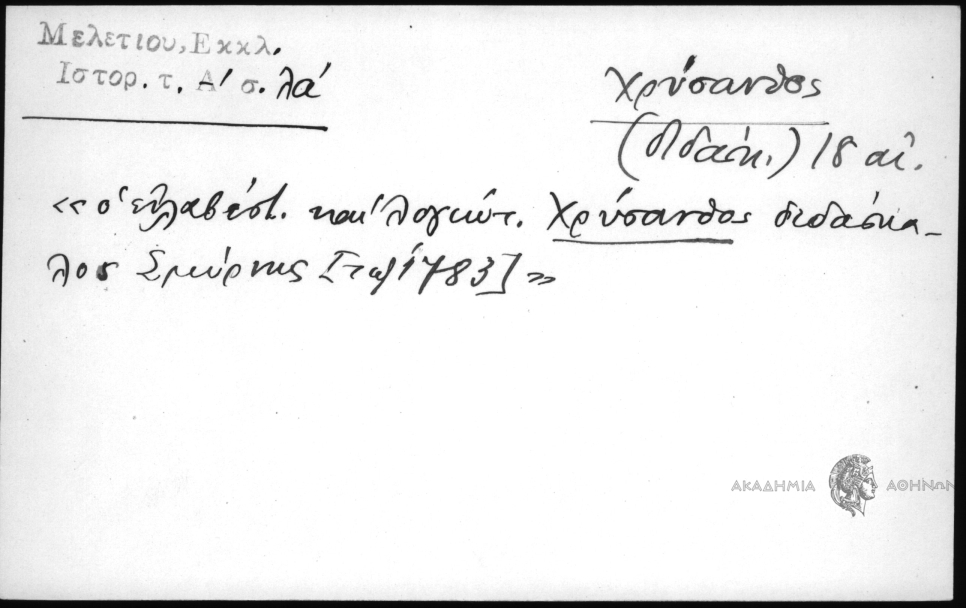 Μελετίου, Εκκλ.
Ιστορ. τ. Α' σ. λά
Χρύσανθος
(διδάσκ.) 18 αἰ.
«ὁ εὐλαβέστ. καὶ λογιώτ. Χρύσανθος διδάσκα-
λος Σμύρνης [τῷ 1783]»
ΑΚΑΔΗΜΙΑ ΑΘΗΝΩΝ